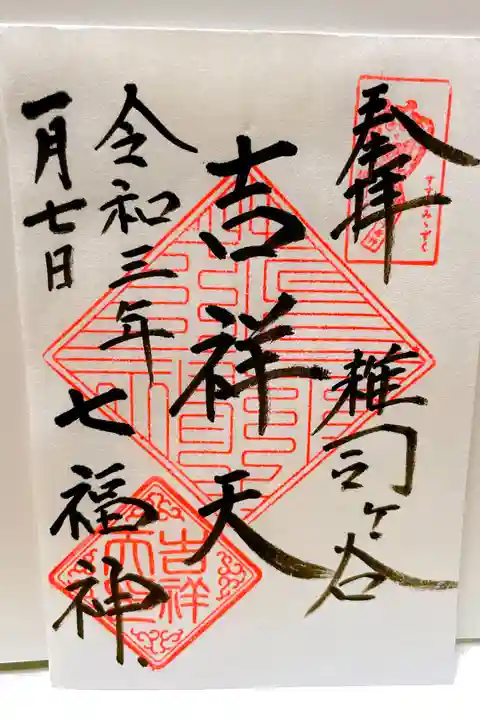 奉拝
すすきみゝずく
雑司ヶ谷
吉祥天
令和三年
七福神
一月七日
吉祥
天